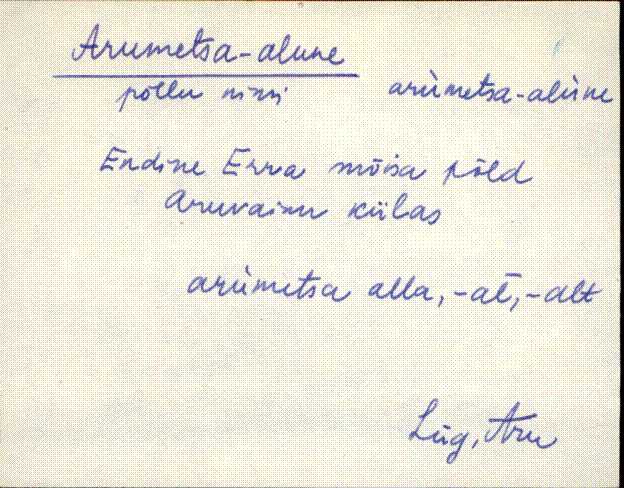 Arumetsa-alune
põllu nimi arùmetsa-alùne
Endine Erra mõisa põld
Aruvainu külas
arùmetsa alla, -al̄, -alt
Lüg, Aru